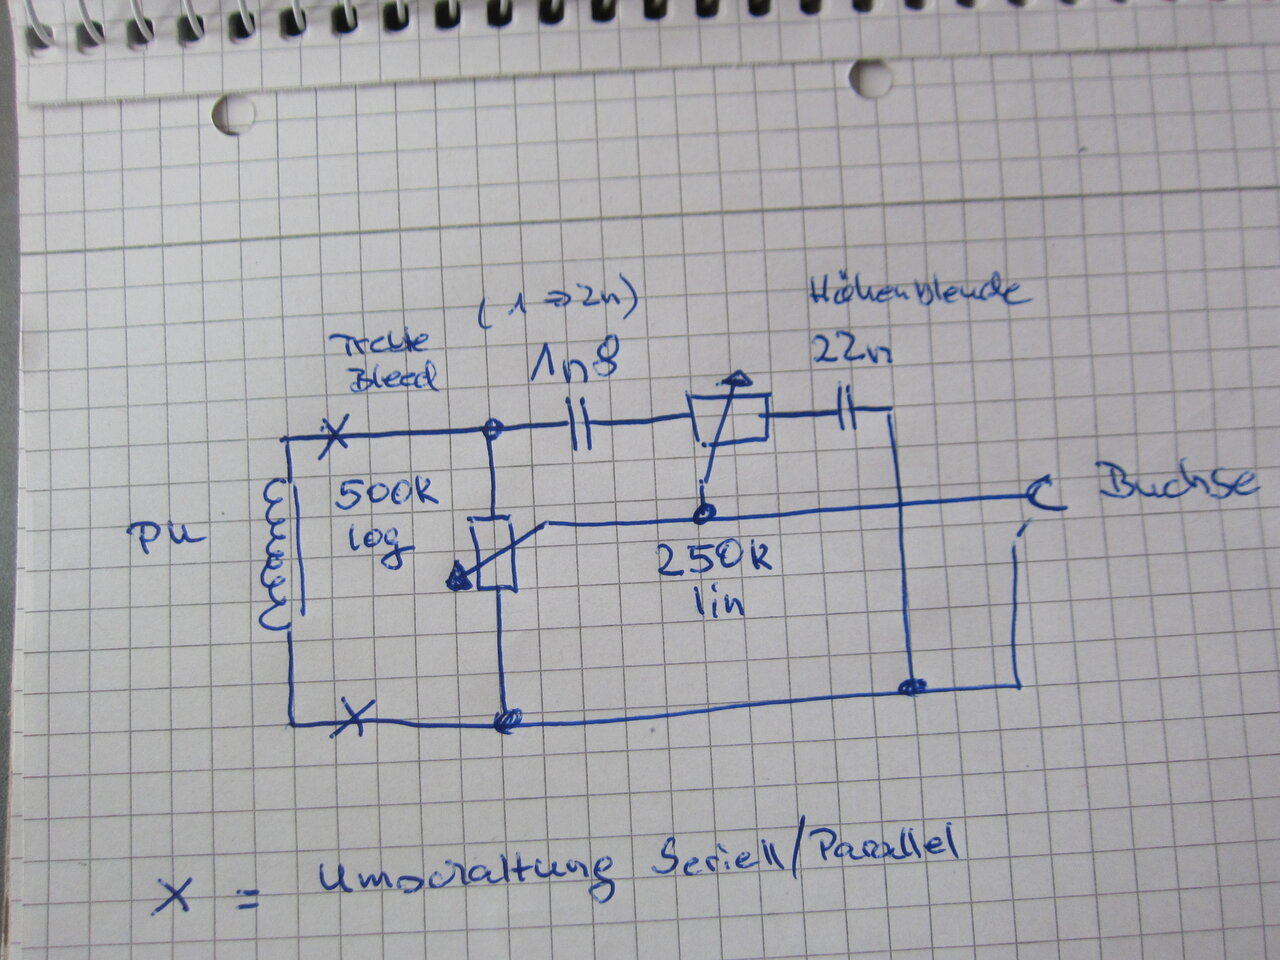 (1 → 2n)
Höhenblende
Treble
Bleed
1n8
22n
500K
log
PU
Buchse
250K
lin
X = Umschaltung Seriell/Parallel